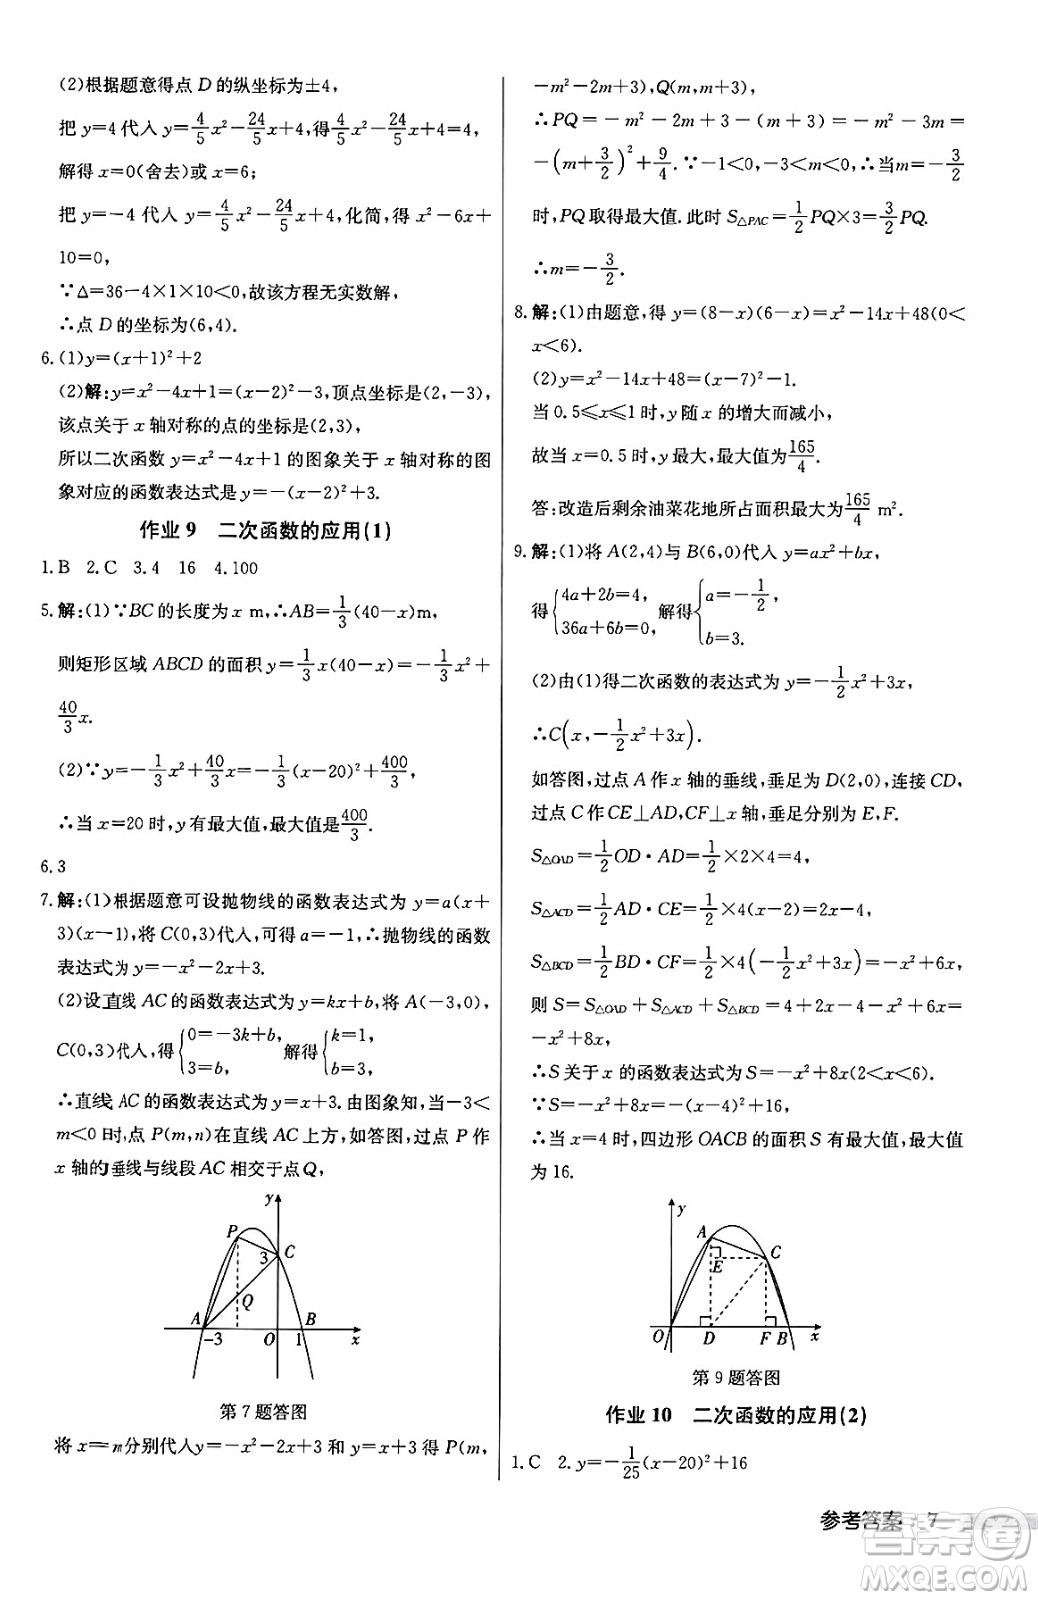 (2)根据题意得点 D 的纵坐标为±4,
把 y=4 代入 y=4/5x²-24/5x+4,得4/5x²-24/5x+4=4,
解得 x=0(舍去)或 x=6;
把 y=-4 代入 y=4/5x²-24/5x+4,化简,得 x²-6x+
10=0,
∵Δ=36-4×1×10<0,故该方程无实数解,
∴点 D 的坐标为(6,4).
6.(1)y=(x+1)²+2
(2)解:y=x²-4x+1=(x-2)²-3,顶点坐标是(2,-3),
该点关于 x 轴对称的点的坐标是(2,3),
所以二次函数 y=x²-4x+1 的图象关于 x 轴对称的图
象对应的函数表达式是 y=-(x-2)²+3.
作业 9 二次函数的应用(1)
1.B 2.C 3.4 16 4.100
5.解:(1)∵BC 的长度为 x m,∴AB=1/3(40-x)m,
则矩形区域 ABCD 的面积 y=1/3x(40-x)=-1/3x²+
40/3x.
(2)∵y=-1/3x²+40/3x=-1/3(x-20)²+400/3,
∴当 x=20 时,y 有最大值,最大值是400/3.
6.3
7.解:(1)根据题意可设抛物线的函数表达式为 y=a(x+
3)(x-1),将 C(0,3)代入,可得 a=-1,∴抛物线的函数
表达式为 y=-x²-2x+3.
(2)设直线 AC 的函数表达式为 y=kx+b,将 A(-3,0),
C(0,3)代入,得{0=-3k+b, 3=b, 解得{k=1, b=3,
∴直线 AC 的函数表达式为 y=x+3.由图象知,当-3<
m<0 时,点 P(m,n)在直线 AC 上方,如答图,过点 P 作
x 轴的垂线与线段 AC 相交于点 Q,
y
P
3
C
Q
A
B
-3
O
1
x
第 7 题答图
将 x=m分别代入y=-x²-2x+3 和 y=x+3 得 P(m,
-m²-2m+3),Q(m,m+3),
∴PQ=-m²-2m+3-(m+3)=-m²-3m=
-(m+3/2)²+9/4.∵-1<0,-3<m<0,∴当m=-3/2
时,PQ 取得最大值.此时 S△PAC=1/2PQ×3=3/2PQ.
∴m=-3/2.
8.解:(1)由题意,得 y=(8-x)(6-x)=x²-14x+48(0<
x<6).
(2)y=x²-14x+48=(x-7)²-1.
当 0.5≤x≤1 时,y 随 x 的增大而减小,
故当 x=0.5 时,y 最大,最大值为165/4.
答:改造后剩余油菜花地所占面积最大为165/4 m².
9.解:(1)将 A(2,4)与 B(6,0)代入 y=ax²+bx,
得{4a+2b=4, 36a+6b=0, 解得{a=-1/2, b=3.
(2)由(1)得二次函数的表达式为 y=-1/2x²+3x,
∴C(x,-1/2x²+3x).
如答图,过点 A 作 x 轴的垂线,垂足为 D(2,0),连接 CD,
过点 C 作 CE⊥AD,CF⊥x 轴,垂足分别为 E,F.
S△OAD=1/2OD·AD=1/2×2×4=4,
S△ACD=1/2AD·CE=1/2×4(x-2)=2x-4,
S△BCD=1/2BD·CF=1/2×4(-1/2x²+3x)=-x²+6x,
则 S=S△OAD+S△ACD+S△BCD=4+2x-4-x²+6x=
-x²+8x,
∴S 关于 x 的函数表达式为 S=-x²+8x(2<x<6).
∵S=-x²+8x=-(x-4)²+16,
∴当 x=4 时,四边形 OACB 的面积 S 有最大值,最大值
为 16.
y
A
C
E
O
D
F
B
x
第 9 题答图
作业 10 二次函数的应用(2)
1.C 2.y=-1/25(x-20)²+16
参考答案 7
答案圈
MXQE.COM